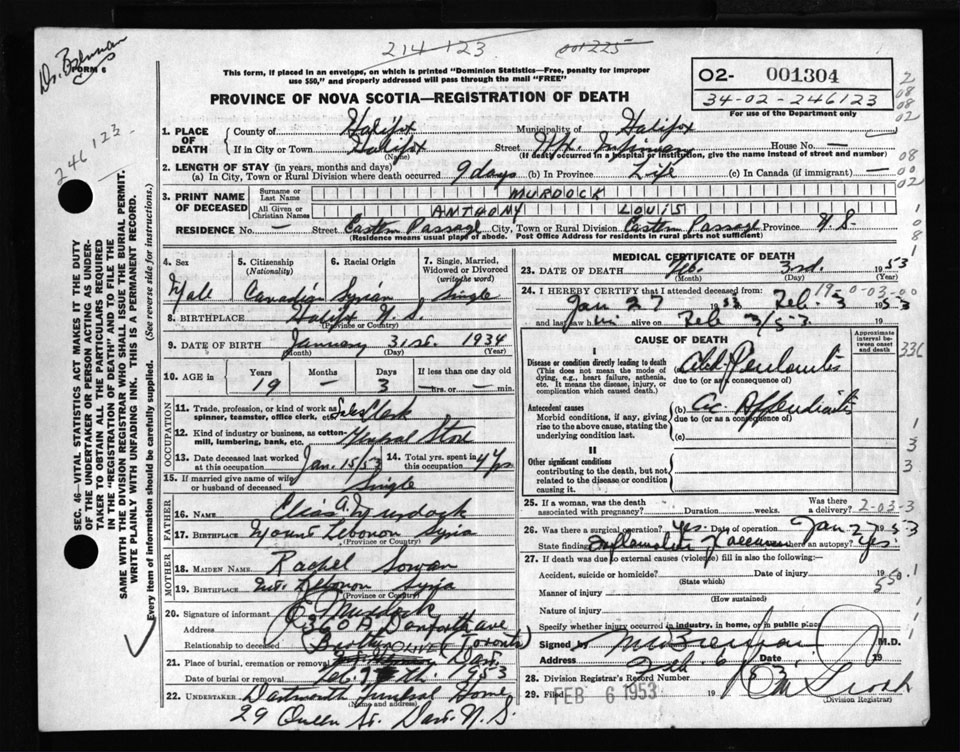 Dr. Brennan
FORM 6
214 123
001225
This form, if placed in an envelope, on which is printed "Dominion Statistics—Free, penalty for improper
use $50," and properly addressed will pass through the mail "FREE"
PROVINCE OF NOVA SCOTIA—REGISTRATION OF DEATH
02- 001304
34-02-246123
For use of the Department only
246 123
SEC. 46—VITAL STATISTICS ACT MAKES IT THE DUTY
OF THE UNDERTAKER OR PERSON ACTING AS UNDER-
TAKER TO OBTAIN ALL THE PARTICULARS REQUIRED
IN THE "REGISTRATION OF DEATH" AND TO FILE THE
SAME WITH THE DIVISION REGISTRAR WHO SHALL ISSUE THE BURIAL PERMIT.
WRITE PLAINLY WITH UNFADING INK. THIS IS A PERMANENT RECORD.
Every item of information should be carefully supplied. (See reverse side for instructions.)
1. PLACE OF DEATH
County of Halifax Municipality of Halifax
If in City or Town Halifax Street Hx. Infirmary House No. —
(Name) (If death occurred in a hospital or institution, give the name instead of street and number)
2. LENGTH OF STAY (in years, months and days)
(a) In City, Town or Rural Division where death occurred 9 days (b) In Province Life (c) In Canada (if immigrant) —
3. PRINT NAME OF DECEASED
Surname or Last Name MURDOCK
All Given or Christian Names ANTHONY LOUIS
RESIDENCE No. — Street Eastern Passage City, Town or Rural Division Eastern Passage Province N.S.
(Residence means usual place of abode. Post Office Address for residents in rural parts not sufficient)
4. Sex Male
5. Citizenship (Nationality) Canadian
6. Racial Origin Syrian
7. Single, Married, Widowed or Divorced (write the word) Single
8. BIRTHPLACE Halifax N.S.
(Province or Country)
9. DATE OF BIRTH January 31st. 1934
(Month) (Day) (Year)
10. AGE in Years 19 Months — Days 3 If less than one day old — hrs. or — min.
OCCUPATION
11. Trade, profession, or kind of work as spinner, teamster, office clerk, etc. Sales Clerk
12. Kind of industry or business, as cotton-mill, lumbering, bank, etc. General Store
13. Date deceased last worked at this occupation Jan. 15/53
14. Total yrs. spent in this occupation 4 yrs
15. If married give name of wife or husband of deceased Single
FATHER
16. Name Elias A. Murdock
17. BIRTHPLACE Mount Lebonon Syria
(Province or Country)
MOTHER
18. MAIDEN NAME Rachel Sowan
19. BIRTHPLACE Mt. Lebonon Syria
(Province or Country)
20. Signature of informant Murdock
Address 360 A Danforth ave
Relationship to deceased Brother (Toronto)
21. Place of burial, cremation or removal OLIVET Dart.
Date of burial or removal Feb. 7th. 1953
22. UNDERTAKER Dartmouth Funeral Home
(Name and address)
29 Queen St. Dart. N.S.
MEDICAL CERTIFICATE OF DEATH
23. DATE OF DEATH Feb. 3rd. 1953
(Month) (Day) (Year)
24. I HEREBY CERTIFY that I attended deceased from:
19-0-03-00
Jan 27 1953 Feb. 3 1953
and last saw him alive on Feb 3/53.
CAUSE OF DEATH
Approximate interval between onset and death
I
Disease or condition directly leading to death
(This does not mean the mode of dying, e.g., heart failure, asthenia, etc. It means the disease, injury, or complication which caused death.)
(a) Peritonitis
due to (or as a consequence of)
Antecedent causes
Morbid conditions, if any, giving rise to the above cause, stating the underlying condition last.
(b) Ac Appendicitis
due to (or as a consequence of)
(c)
II
Other significant conditions
contributing to the death, but not related to the disease or condition causing it.
25. If a woman, was the death associated with pregnancy? Duration weeks. Was there a delivery?
2-03-3
26. Was there a surgical operation? Yes. Date of operation Jan 27 1953
State findings Was there an autopsy? Yes.
27. If death was due to external causes (violence) fill in also the following:—
Accident, suicide or homicide? Date of injury 19
(State which)
Manner of injury
550.1
(How sustained)
Nature of injury
Specify whether injury occurred in industry, in home, or in public place
Signed by Brennan M.D.
Address Date Feb. 6 19
28. Division Registrar's Record Number
29. Filed FEB 6 1953 19
(Division Registrar)